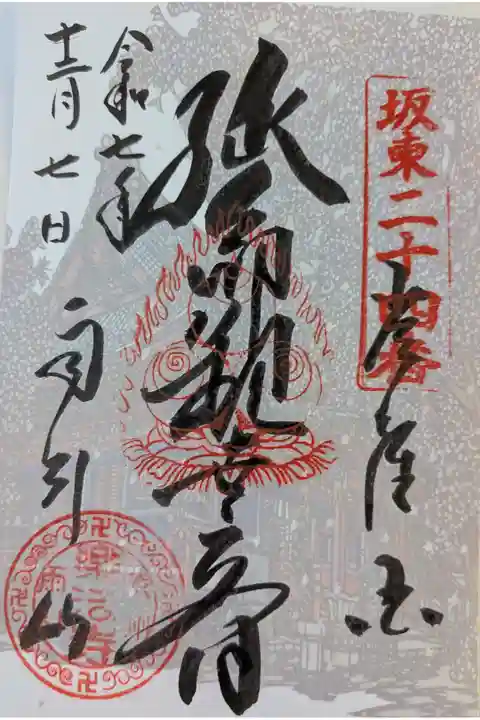 坂東二十四番
奉拝
延命観世音
令和七年
十二月七日
雨引山
楽法寺